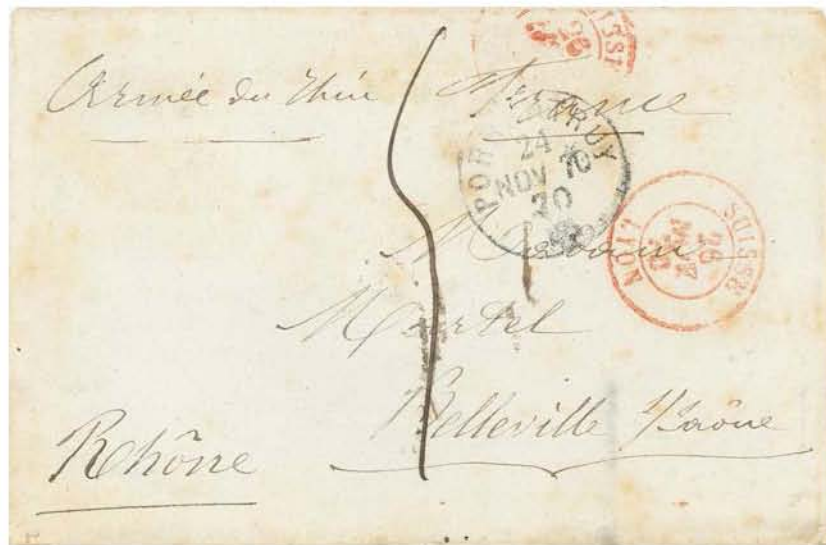 Armée du Rhin France
PORRENTRUY
24
NOV 70
20
SUISSE
26
LYON
Madame
Martel
Belleville s/Saône
Rhône